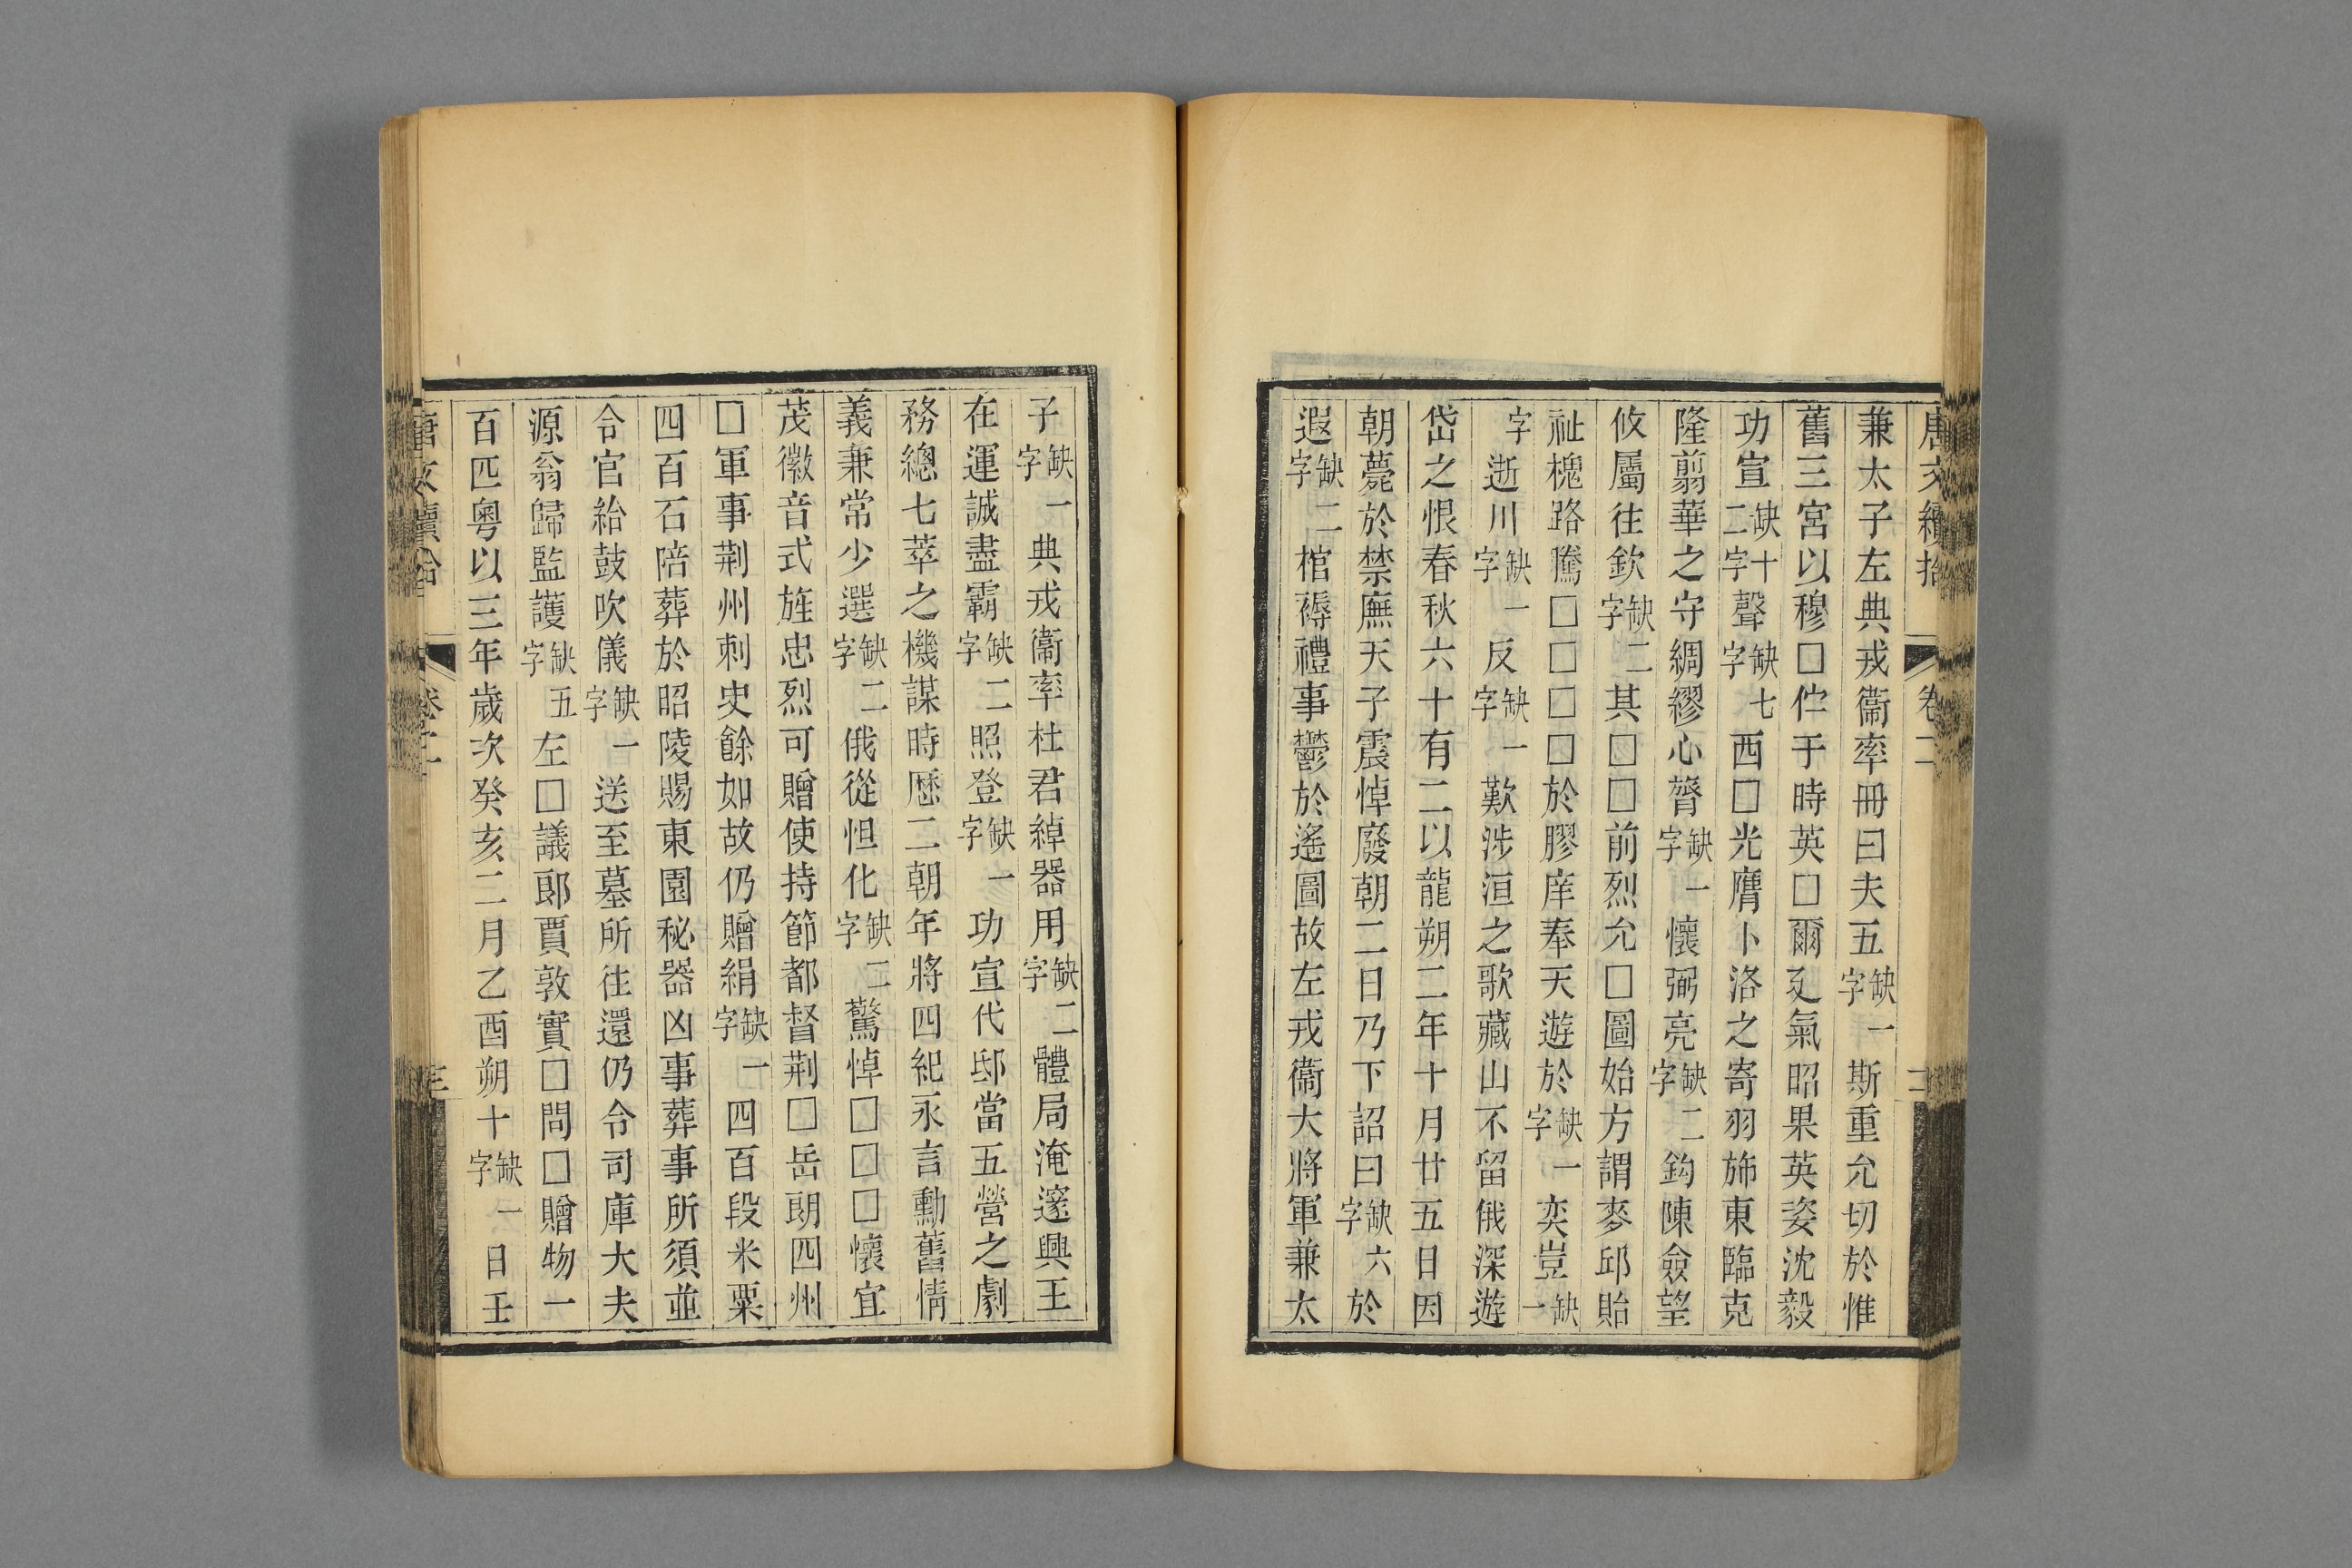 唐文續拾 卷二 二
兼太子左典戎衞率冊曰夫五缺一字斯重允切於惟
舊三宮以穆□伫于時英□爾㢟氣昭果英姿沈毅
功宣缺十二十字聲缺七字西□光膺卜洛之寄羽斾東臨克
隆翦華之守綢繆心膂缺一字懷弼亮缺二字鈎陳僉望
攸屬往欽缺二字其□□前烈允□圖始方謂麥邱貽
祉槐路騰□□□□於膠庠奉天遊於缺一字奕豈缺一
字逝川缺一字反缺一字歎涉洹之歌藏山不留俄深遊
岱之恨春秋六十有二以龍朔二年十月廿五日因
朝薨於禁廡天子震悼廢朝二日乃下詔曰缺六字於
遐缺二字棺褥禮事鬱於遙圖故左戎衞大將軍兼太
子缺一字典戎衞率杜君綽器用缺二字體局淹邃興王
在運誠盡霸缺二字照登缺一字功宣代邸當五營之劇
務總七萃之機謀時歷二朝年將四紀永言勳舊情
義兼常少選缺二字俄從怛化缺二字驚悼□□□懷宜
茂徽音式旌忠烈可贈使持節都督荆□岳朗四州
□軍事荆州刺史餘如故仍贈絹缺一字四百段米粟
四百石陪葬於昭陵賜東園秘器凶事葬事所須並
令官給鼓吹儀缺一字送至墓所往還仍令司庫大夫
源翁歸監護缺五字左□議郎賈敦實□問□贈物一
百匹粵以三年歲次癸亥二月乙酉朔十缺一字日壬
唐文續拾 卷二 三